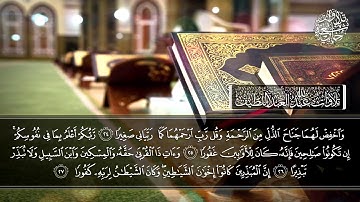 تلاوات عبدالله العبداللطيف
وَٱخْفِضْ لَهُمَا جَنَاحَ ٱلذُّلِّ مِنَ ٱلرَّحْمَةِ وَقُل رَّبِّ ٱرْحَمْهُمَا كَمَا رَبَّيَانِي صَغِيرًا ٢٤ رَّبُّكُمْ أَعْلَمُ بِمَا فِي نُفُوسِكُمْ
إِن تَكُونُوا۟ صَٰلِحِينَ فَإِنَّهُۥ كَانَ لِلْأَوَّٰبِينَ غَفُورًا ٢٥ وَءَاتِ ذَا ٱلْقُرْبَىٰ حَقَّهُۥ وَٱلْمِسْكِينَ وَٱبْنَ ٱلسَّبِيلِ وَلَا تُبَذِّرْ
تَبْذِيرًا ٢٦ إِنَّ ٱلْمُبَذِّرِينَ كَانُوٓا۟ إِخْوَٰنَ ٱلشَّيَٰطِينِ وَكَانَ ٱلشَّيْطَٰنُ لِرَبِّهِۦ كَفُورًا ٢٧